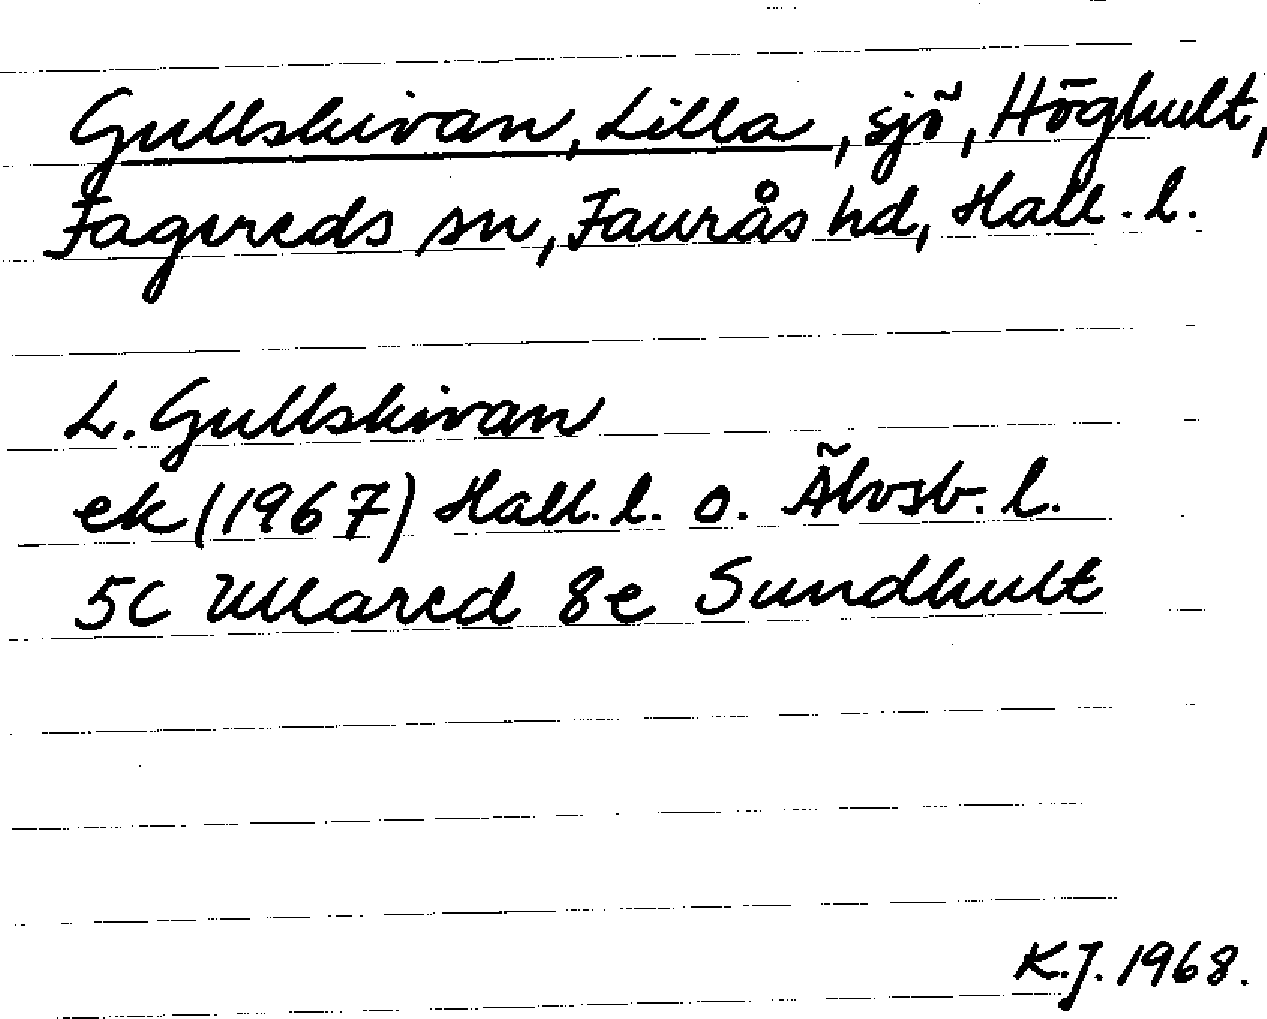 Gullskivan, Lilla, sjö, Höghult,
Fagereds sn, Faurås hd, Hall. l.
L. Gullskivan
ek (1967) Hall. l. o. Älvsb. l.
5C Ullared 8e Sundhult
K.J. 1968.